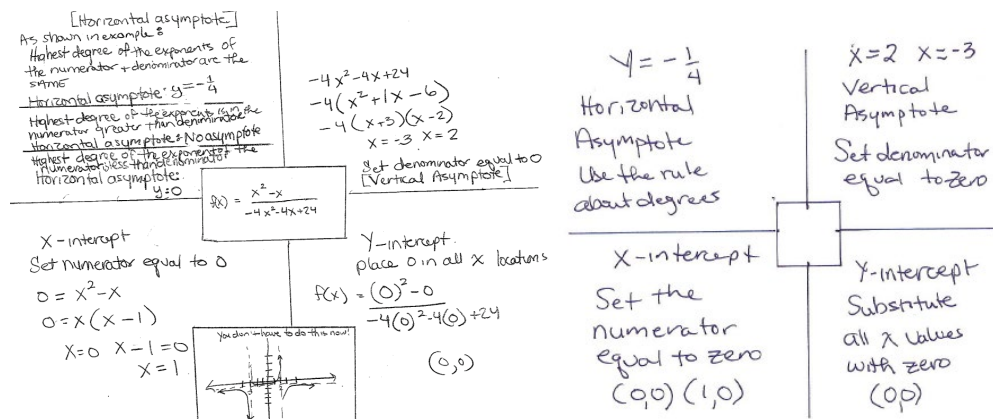 [Horizontal asymptote]
As shown in example:
Highest degree of the exponents of
the numerator + denominator are the
SAME
Horizontal asymptote: y=-1/4
Highest degree of the exponents is in the
numerator greater than denominator
Horizontal asymptote: No asymptote
Highest degree of the exponent of the
numerator less than denominator
Horizontal asymptote:
y=0
-4x²-4x+24
-4(x²+1x-6)
-4(x+3)(x-2)
x=-3 x=2
Set denominator equal to 0
[Vertical Asymptote]
f(x) = (x²-x)/(-4x²-4x+24)
X-intercept
Set numerator equal to 0
0=x²-x
0=x(x-1)
x=0 x-1=0
x=1
Y-intercept
place 0 in all x locations
f(x) = (0)²-0
-4(0)²-4(0)+24
(0,0)
You don't have to do this now!
Y=-1/4
Horizontal
Asymptote
Use the rule
about degrees
X=2 X=-3
Vertical
Asymptote
Set denominator
equal to zero
X-intercept
Set the
numerator
equal to zero
(0,0) (1,0)
Y-intercept
Substitute
all x values
with zero
(0,0)